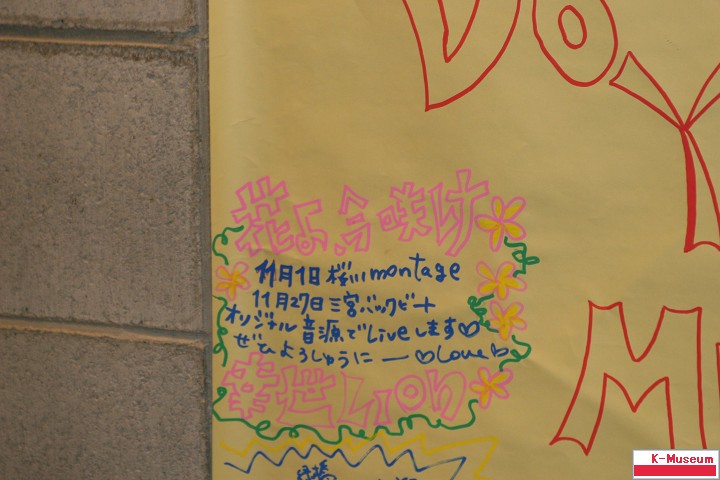 DO Y
花よ、今咲け
11月1日 桜川montage
11月27日三宮バックビート
オリジナル音源でLiveします♡
ぜひよろしゅうに ー ♡Love♭
幸世LION
M
K-Museum